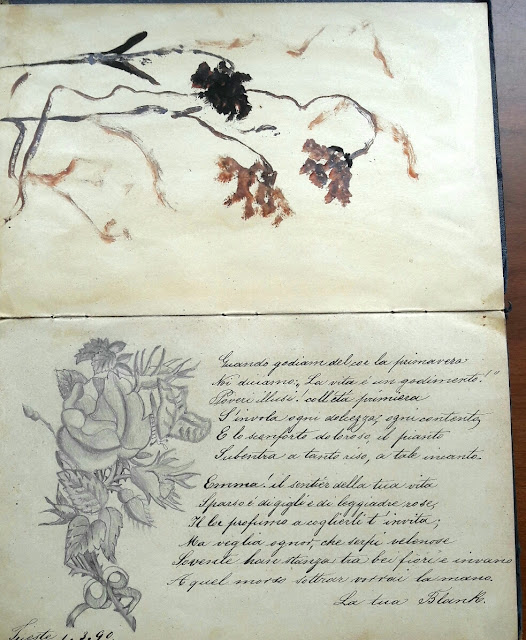 Quando godiam del cor la primavera
Noi diciamo: „La vita è un godimento!"
Poveri illusi! coll'età primiera
S'invola ogni dolcezza, ogni contento,
E lo sconforto doloroso, il pianto
Subentra a tanto riso, a tale incanto.
Emma! il sentier della tua vita
Sparso è di gigli e di leggiadre rose,
Il lor profumo a coglierli t'invita;
Ma veglia ognor, che serpi velenose
Sovente han stanza tra bei fiori e invano
A quel morso sottrar vorrai la mano.
La tua Blank.
Trieste 1.3.90.